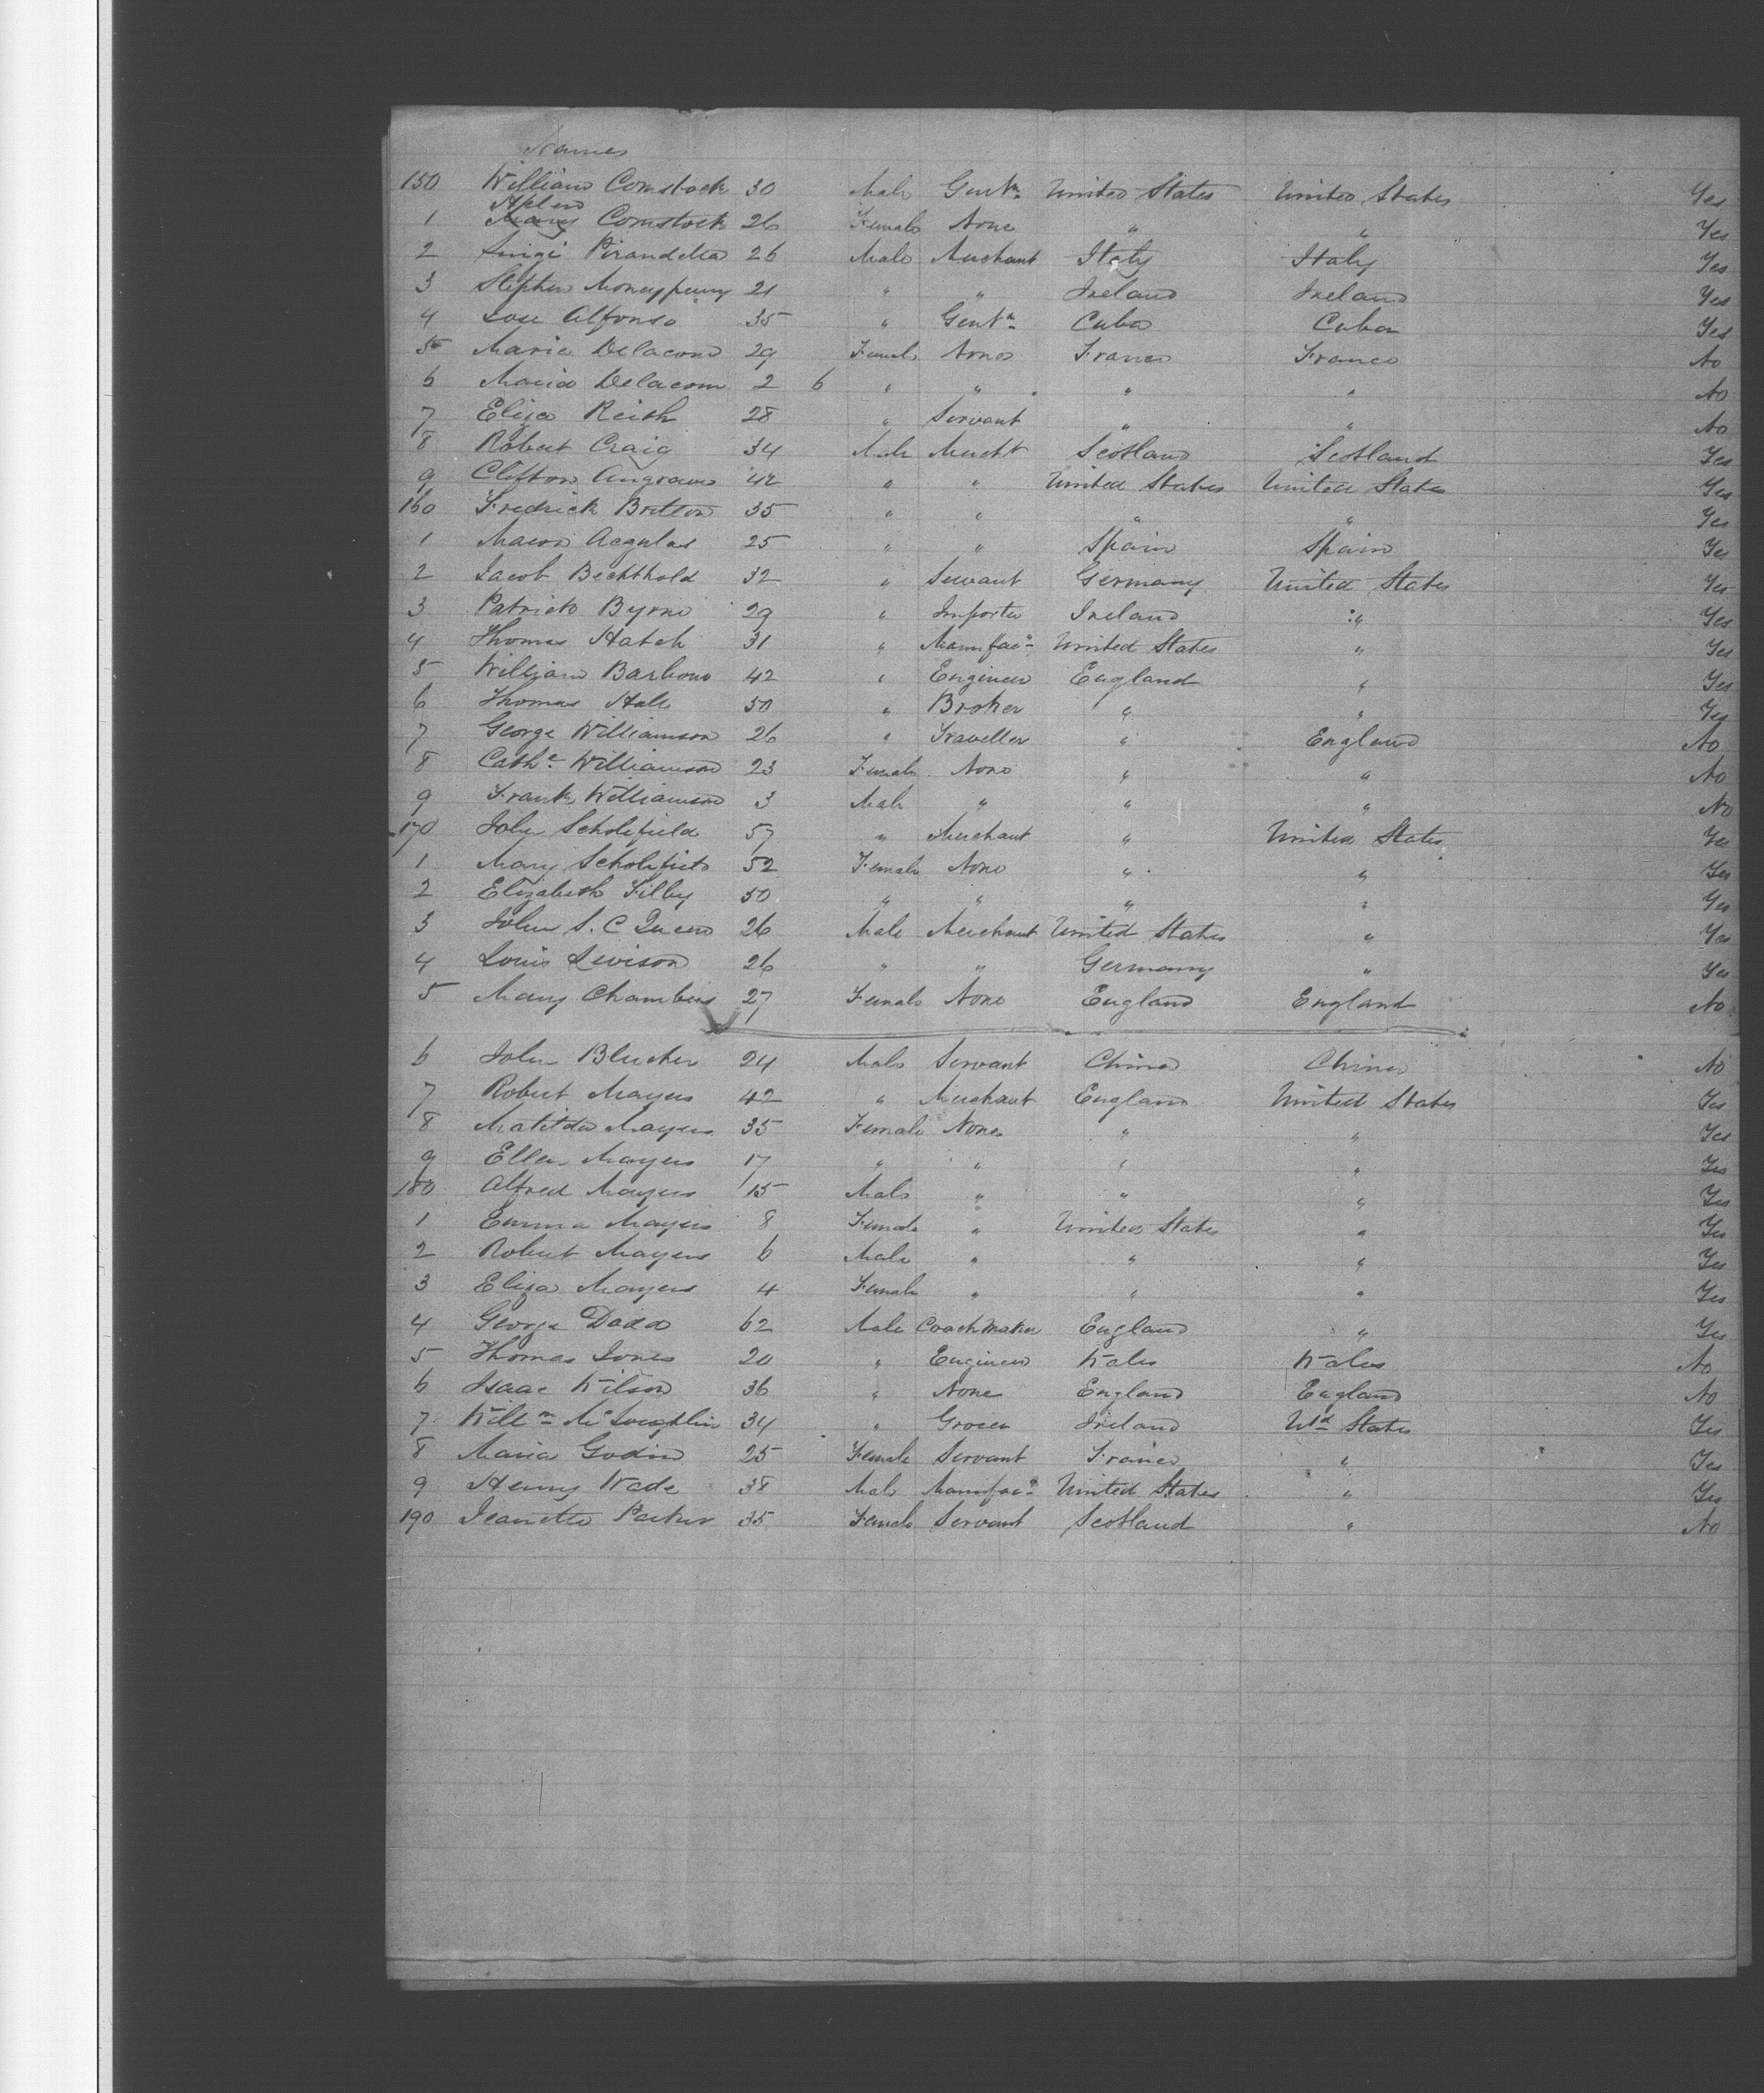 Names
150 William Comstock 30 Male Gentn United States United States Yes
Helen
1 Mary Comstock 26 Female None " " Yes
2 Luigi Pirandella 26 Male Merchant Italy Italy Yes
3 Stephen Moneypenny 21 " " Ireland Ireland Yes
4 Jose Alfonso 35 " Gentn Cuba Cuba Yes
5 Maria 29 Female None France France No
6 Maria 2 6 " " " " No
7 Eliza Keith 28 " Servant " " No
8 Robert Craig 34 Male Mercht Scotland Scotland Yes
9 Clifton 42 " " United States United States Yes
160 Fredrick Britton 35 " " " " Yes
1 25 " " Spain Spain Yes
2 Jacob Bechthold 32 " Servant Germany United States Yes
3 Patrick Byrne 29 " Importer Ireland " Yes
4 Thomas Hatch 31 " Manufacr United States " Yes
5 William Barbour 42 " Engineer England " Yes
6 Thomas Hall 50 " Broker " " Yes
7 George Williamson 26 " Traveller " England No
8 Cathe Williamson 23 Female None " " No
9 Frank Williamson 3 Male " " " No
170 John Scholefield 57 " Merchant " United States Yes
1 Mary Scholefield 52 Female None " " Yes
2 Elizabeth Filby 50 " " " " Yes
3 John S. C Queen 26 Male Merchant United States " Yes
4 Louis Levison 26 " " Germany " Yes
5 Mary Chambers 27 Female None England England No
6 John Blucher 24 Male Servant China China No
7 Robert Mayers 42 " Merchant England United States Yes
8 Matilda Mayers 35 Female None " " Yes
9 Ellen Mayers 17 " " " " Yes
180 Alfred Mayers 15 Male " " " Yes
1 Emma Mayers 8 Female " United States " Yes
2 Robert Mayers 6 Male " " " Yes
3 Eliza Mayers 4 Female " " " Yes
4 George Dadd 62 Male Coachmaker England " Yes
5 Thomas Jones 20 " Engineer Wales Wales No
6 Isaac Wilson 36 " None England England No
7 Willm McLoughlin 34 " Grocer Ireland Utd States Yes
8 Maria Godin 25 Female Servant France " Yes
9 Henry Wade 38 Male Manufacr United States " Yes
190 Jeanette Parker 35 Female Servant Scotland " No